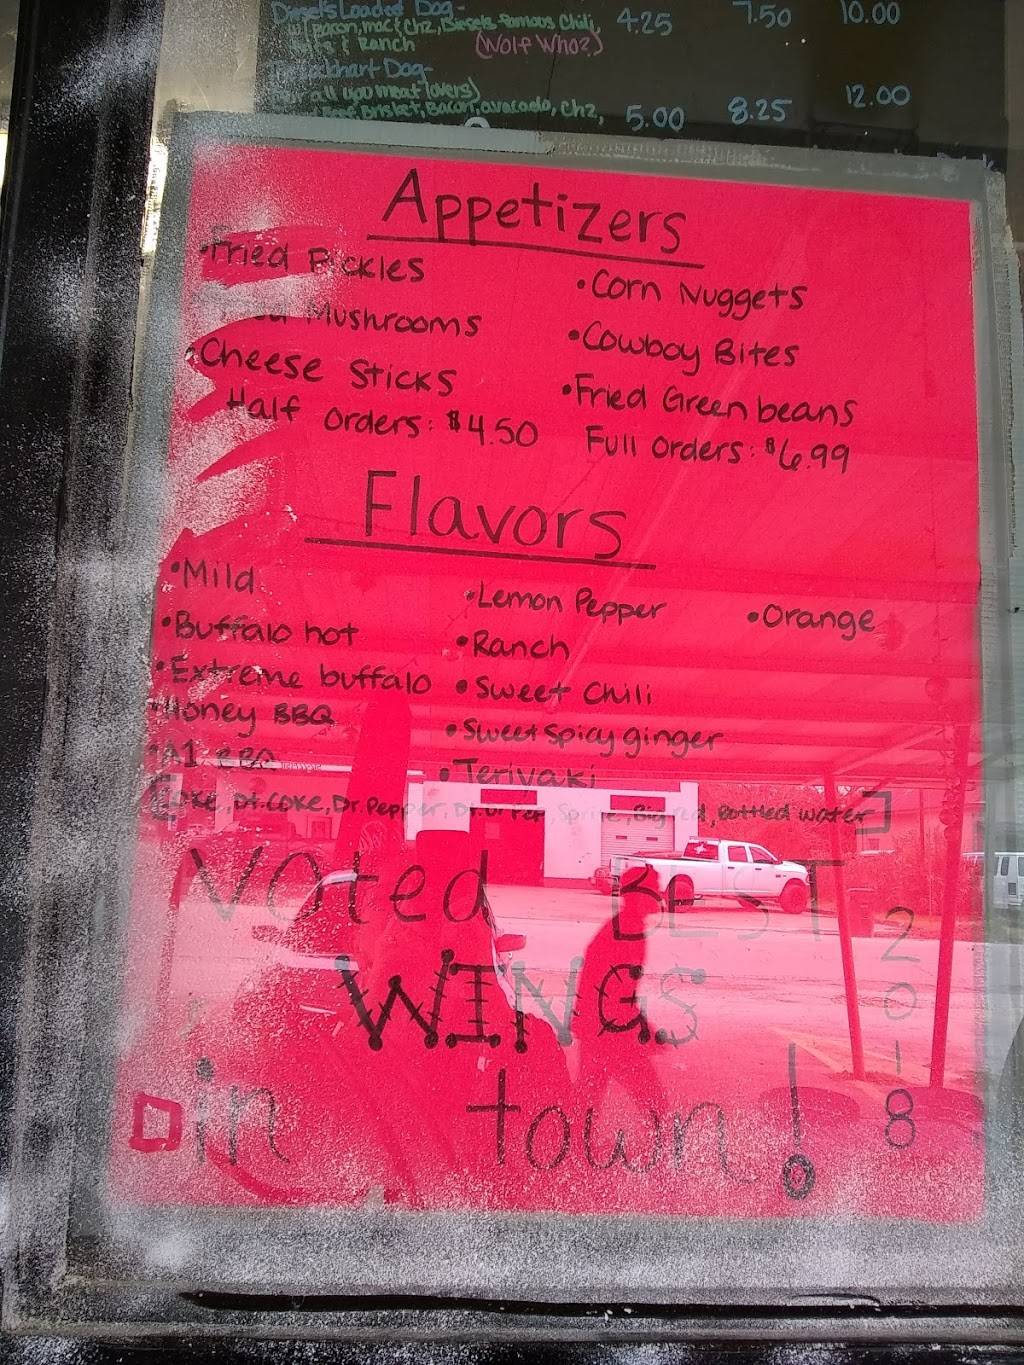 Diesel's Loaded Dog-
w/ Bacon, mac & chz, Diesels famous Chili, 4.25 7.50 10.00
& Ranch (Wolf Who?)
Dog-
all you meat lovers)
Brisket, Bacon, avacado, chz, 5.00 8.25 12.00
Appetizers
•Fried Pickles •Corn Nuggets
Mushrooms •Cowboy Bites
•Cheese Sticks •Fried Green beans
Half Orders: $4.50 Full Orders: $6.99
Flavors
•Mild •Lemon Pepper •Orange
•Buffalo hot •Ranch
•Extreme buffalo •Sweet Chili
•Honey BBQ •Sweet Spicy ginger
•A1 BBQ •Teriyaki
[Coke, Dt. Coke, Dr. Pepper, Dt. Dr Pep, Sprite, Big red, Bottled water]
Voted BEST
WINGS
in town!
2018